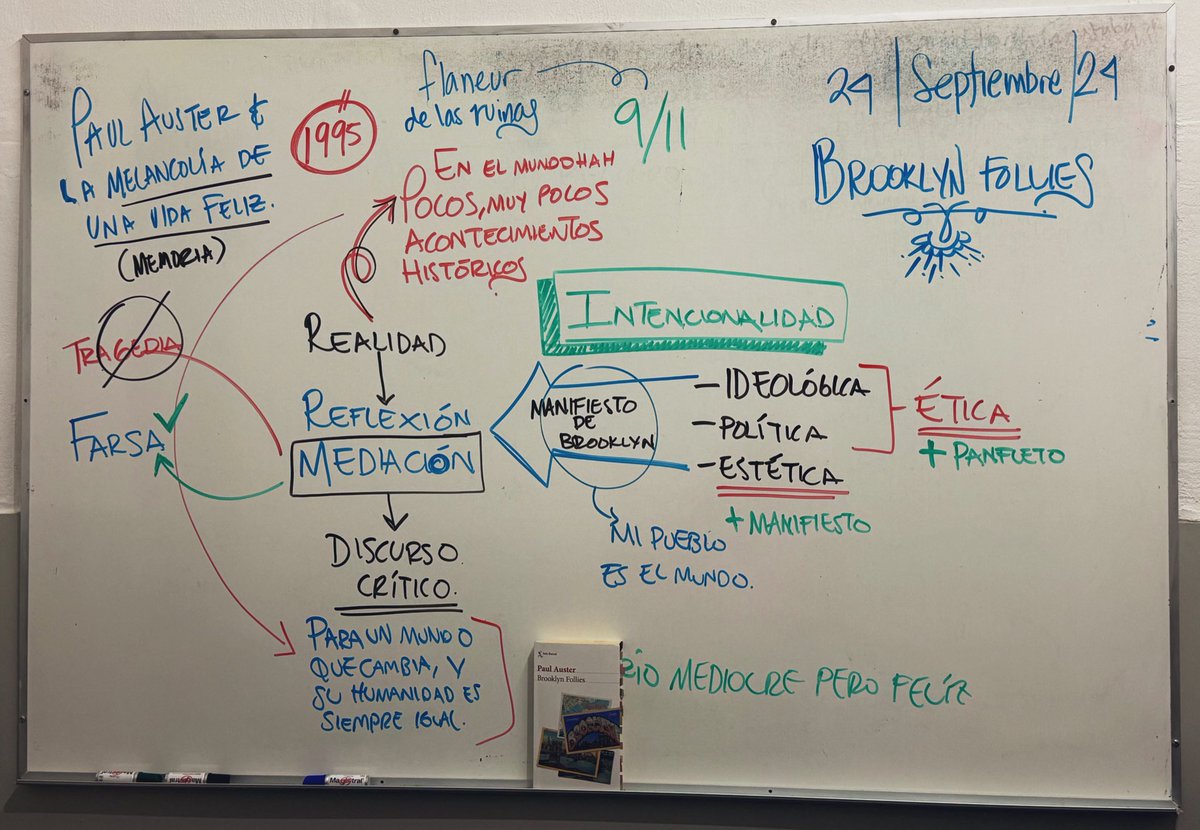 PAUL AUSTER &
LA MELANCOLÍA DE
UNA VIDA FELIZ.
(MEMORIA)
1995
flaneur
de las ruinas
9/11
24 | Septiembre | 24
BROOKLYN FOLLIES
EN EL MUNDO HAH
POCOS, MUY POCOS
ACONTECIMIENTOS
HISTÓRICOS
INTENCIONALIDAD
TRAGEDIA
FARSA
REALIDAD
REFLEXIÓN
MEDIACIÓN
DISCURSO
CRÍTICO.
PARA UN MUNDO
QUE CAMBIA, Y
SU HUMANIDAD ES
SIEMPRE IGUAL.
MANIFIESTO
DE
BROOKLYN
- IDEOLÓGICA
- POLÍTICA
- ESTÉTICA
+ MANIFIESTO
ÉTICA
+ PANFLETO
MI PUEBLO
ES EL MUNDO.
Paul Auster
Brooklyn Follies
MEDIOCRE PERO FELIZ
Magistral